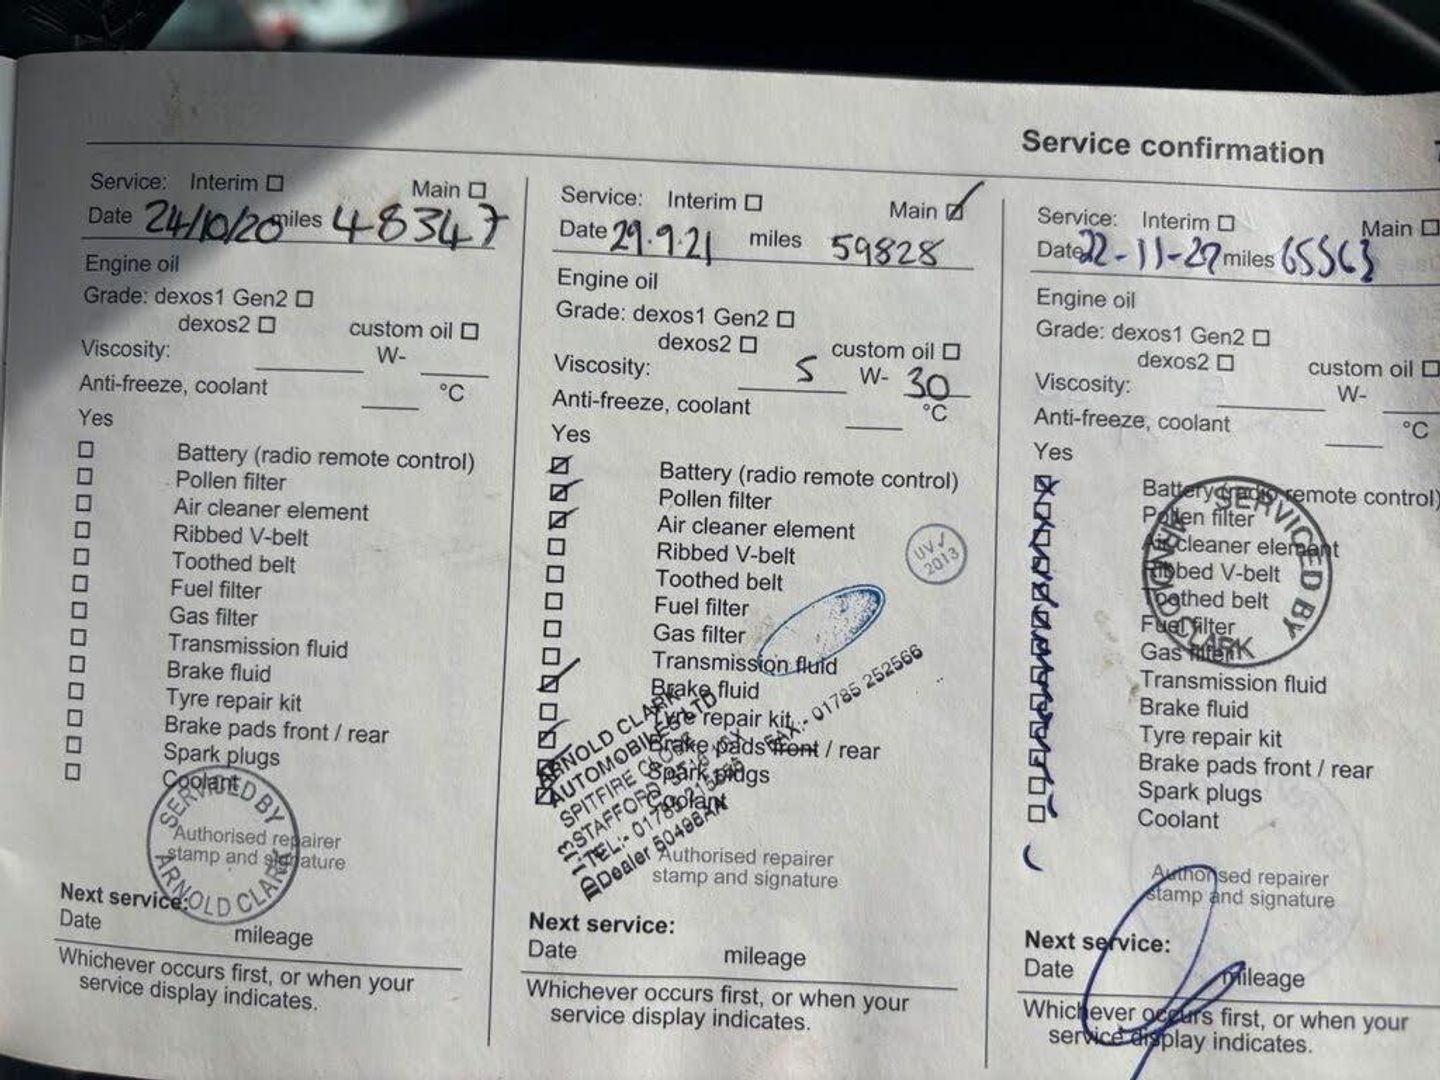 Service confirmation
Service: Interim ☐ Main ☐
Date 24/10/20 miles 48347
Engine oil
Grade: dexos1 Gen2 ☐
dexos2 ☐ custom oil ☐
Viscosity: W-
Anti-freeze, coolant °C
Yes
☐ Battery (radio remote control)
☐ Pollen filter
☐ Air cleaner element
☐ Ribbed V-belt
☐ Toothed belt
☐ Fuel filter
☐ Gas filter
☐ Transmission fluid
☐ Brake fluid
☐ Tyre repair kit
☐ Brake pads front / rear
☐ Spark plugs
☐ Coolant
SERVICED BY
ARNOLD CLARK
Authorised repairer
stamp and signature
Next service:
Date mileage
Whichever occurs first, or when your
service display indicates.
Service: Interim ☐ Main ☑
Date 29.9.21 miles 59828
Engine oil
Grade: dexos1 Gen2 ☐
dexos2 ☐ custom oil ☐
Viscosity: 5 W- 30
Anti-freeze, coolant °C
Yes
☑ Battery (radio remote control)
☑ Pollen filter
☑ Air cleaner element
☐ Ribbed V-belt
☐ Toothed belt
☐ Fuel filter
☐ Gas filter
☐ Transmission fluid
☑ Brake fluid
☐ Tyre repair kit
☑ Brake pads front / rear
Spark plugs
☑ Coolant
UV ✓
2013
ARNOLD CLARK
AUTOMOBILES LTD
SPITFIRE CLOSE
STAFFORD
TEL:- 01785
FAX:- 01785 252566
Dealer
Authorised repairer
stamp and signature
Next service:
Date mileage
Whichever occurs first, or when your
service display indicates.
Service: Interim ☐ Main ☐
Date 22-11-22 miles
Engine oil
Grade: dexos1 Gen2 ☐
dexos2 ☐ custom oil ☐
Viscosity: W-
Anti-freeze, coolant °C
Yes
Battery (radio remote control)
Pollen filter
Air cleaner element
Ribbed V-belt
Toothed belt
Fuel filter
Gas filter
Transmission fluid
Brake fluid
Tyre repair kit
Brake pads front / rear
Spark plugs
Coolant
SERVICED BY
ARNOLD CLARK
Authorised repairer
stamp and signature
Next service:
Date mileage
Whichever occurs first, or when your
service display indicates.